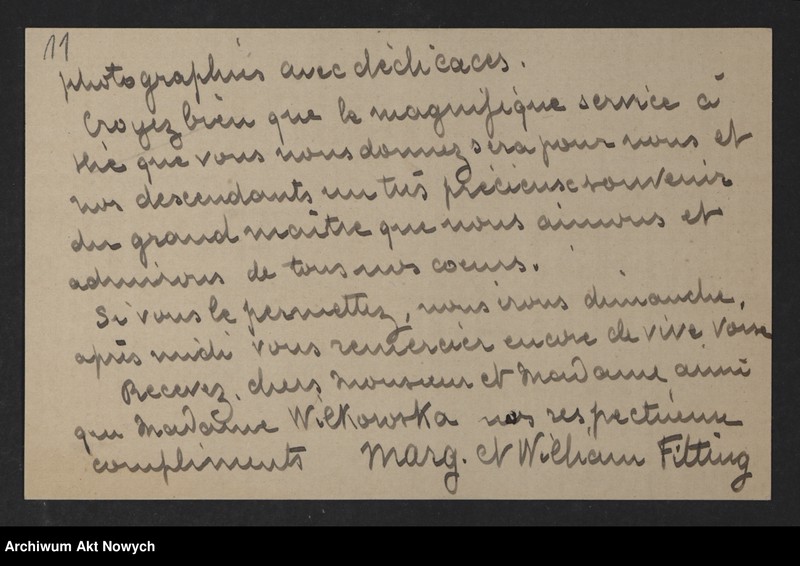 11
photographies avec dédicaces.
Croyez bien que le magnifique service à
thé que vous nous donnez sera pour nous et
nos descendants un très précieux souvenir
du grand maître que nous aimons et
admirons de tous nos coeurs.
Si vous le permettez, nous irons dimanche,
après midi vous remercier encore de vive voix
Recevez, chers Monsieur et Madame ainsi
que Madame Wilkowska nos respectueux
compliments Marg. et William Fitting
Archiwum Akt Nowych